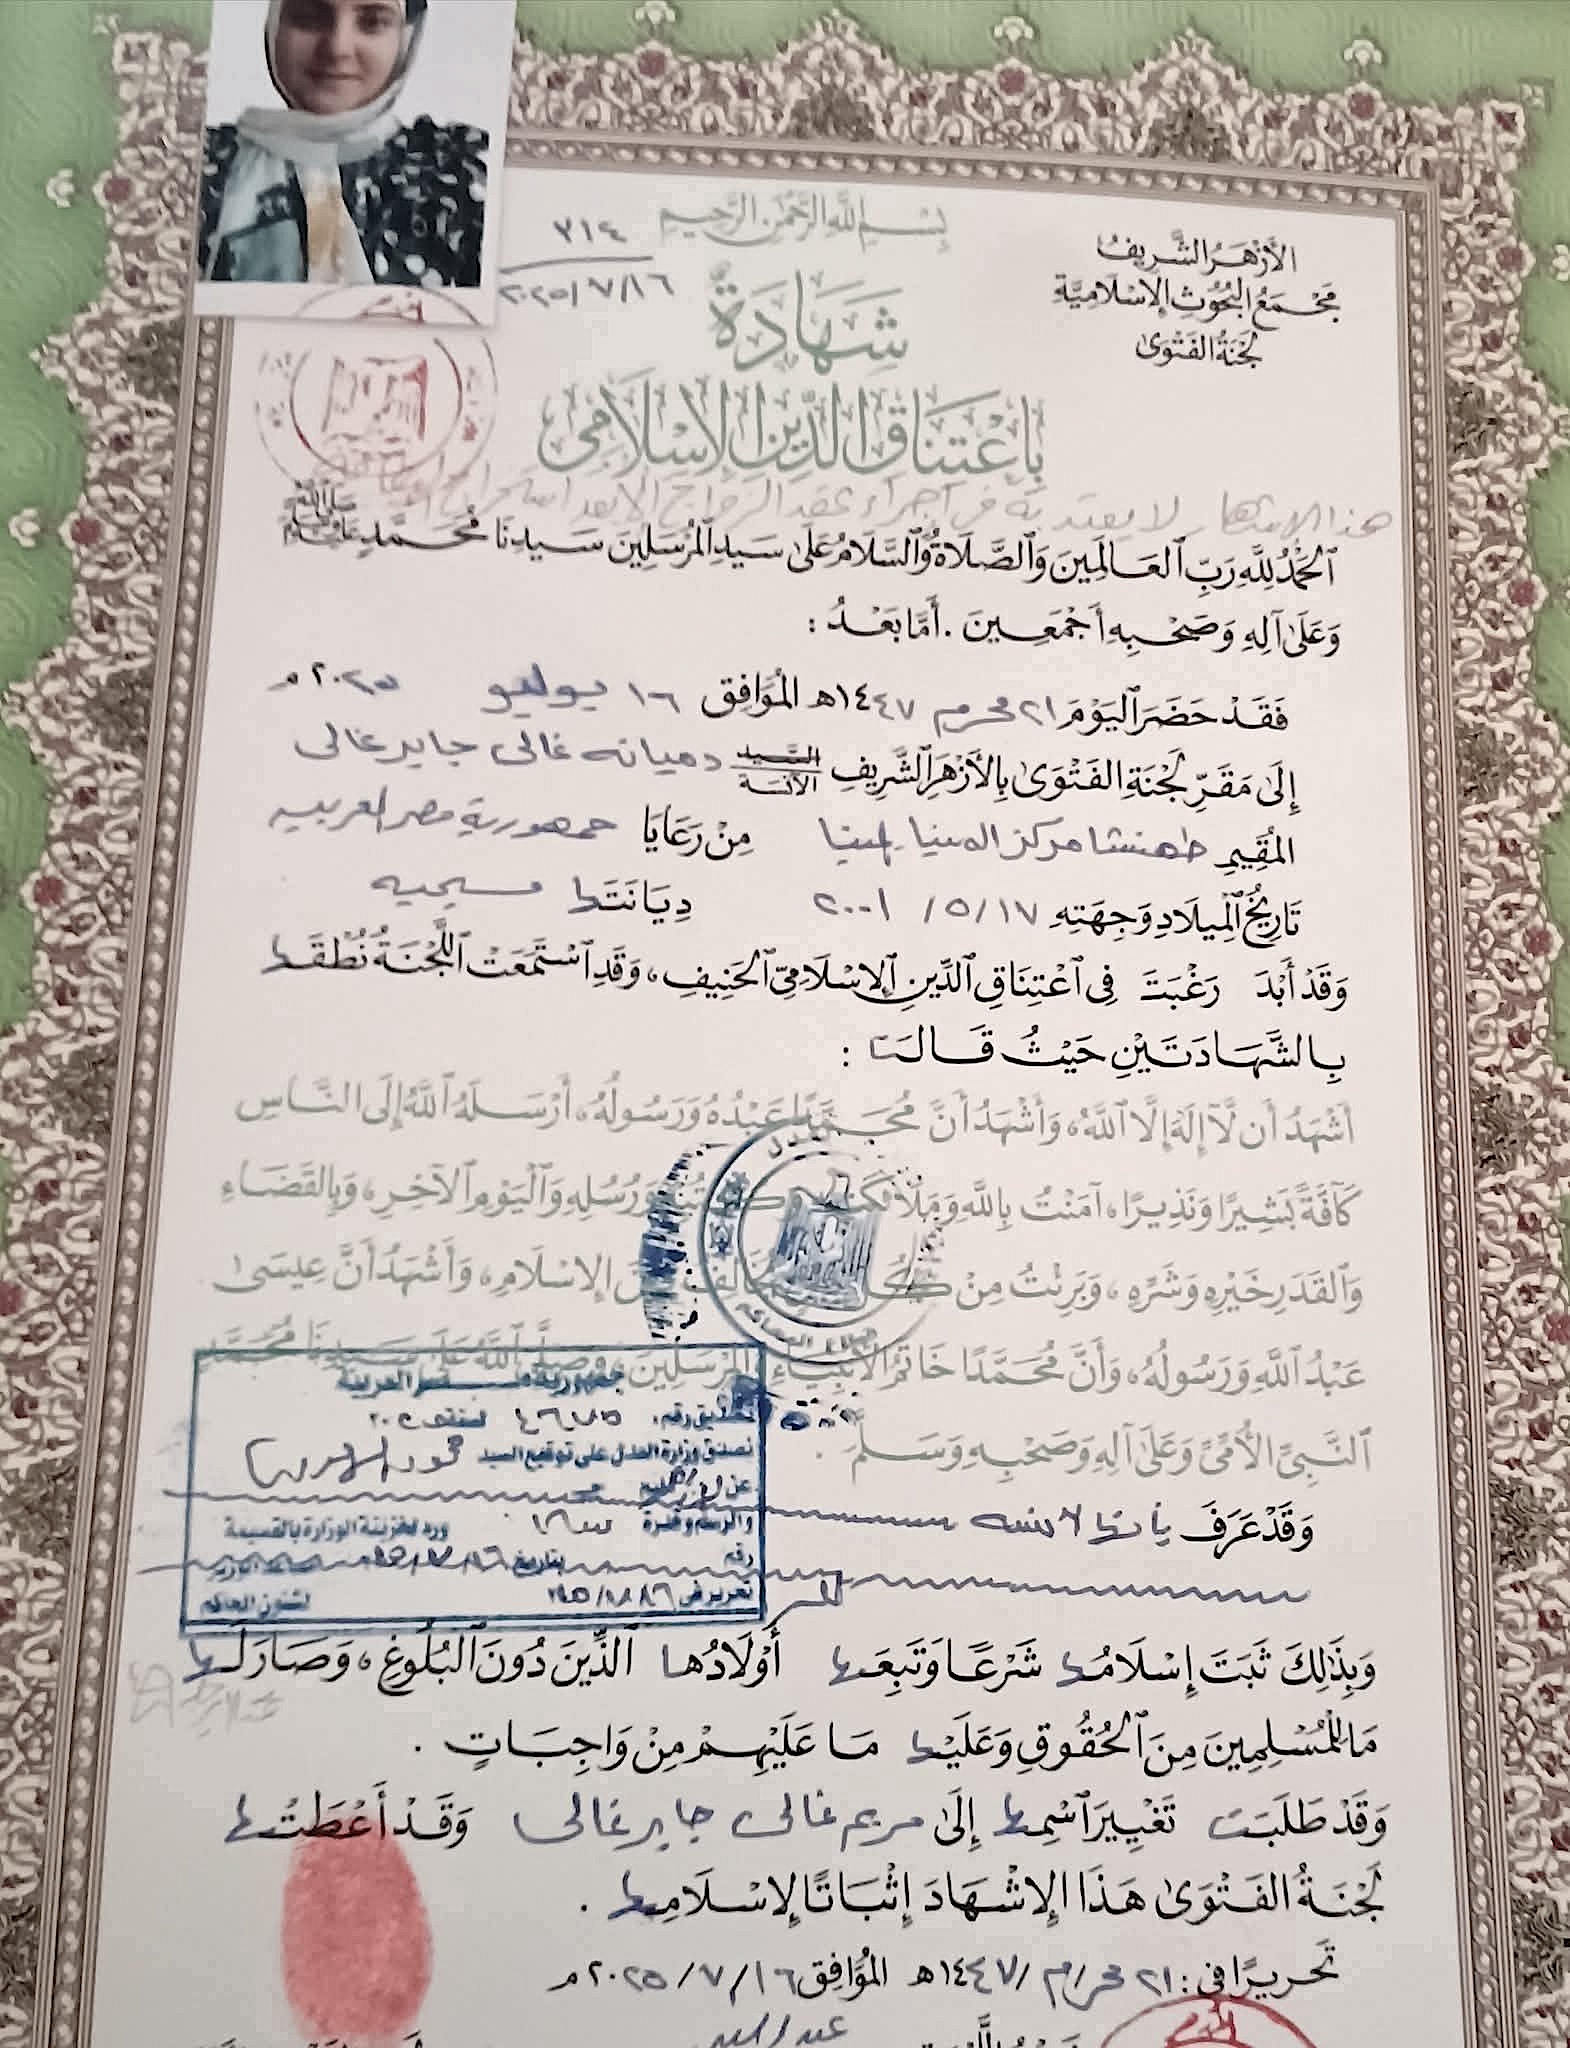 بِسْمِ اللَّهِ الرَّحْمَنِ الرَّحِيمِ
الأَزْهَرُ الشَّرِيفُ
مَجْمَعُ البُحُوثِ الإِسْلَامِيَّةِ
لَجْنَةُ الفَتْوَىٰ
٣١٤
٢٠٢٥/٧/١٦
شَهَادَةٌ
بِاعْتِنَاقِ الدِّينِ الإِسْلَامِي
هذا الإشهار لا يعتد به في إجراء عقد الزواج إلا بعد استخراج
الحَمْدُ لِلَّهِ رَبِّ العَالَمِينَ وَالصَّلَاةُ وَالسَّلَامُ عَلَىٰ سَيِّدِ المُرْسَلِينَ سَيِّدِنَا مُحَمَّدٍ ﷺ
وَعَلَىٰ آلِهِ وَصَحْبِهِ أَجْمَعِينَ . أَمَّا بَعْدُ :
فَقَدْ حَضَرَ اليَوْمَ ٢١ محرم ١٤٤٧ه المُوَافِق ١٦ يوليو ٢٠٢٥ م
إِلَىٰ مَقَرِّ لَجْنَةِ الفَتْوَىٰ بِالأَزْهَرِ الشَّرِيفِ السَّيد الآنسة دميانه غالى جابر غالى
المُقِيمِ طهنشا مركز المنيا المنيا مِنْ رَعَايَا جمهورية مصر العربيه
تَارِيخُ المِيلَادِ وَجِهَتِهِ ١٧/ ٥/ ٢٠٠١ دِيَانَتها مسيحيه
وَقَدْ أَبْدَ رَغْبَتَ فِي اعْتِنَاقِ الدِّينِ الإِسْلَامِيِّ الحَنِيفِ، وَقَدِ اسْتَمَعَتْ اللَّجْنَةُ نُطْقَها
بِالشَّهَادَتَيْنِ حَيْثُ قَالَت :
أَشْهَدُ أَن لَّا إِلَهَ إِلَّا اللَّهُ، وَأَشْهَدُ أَنَّ مُحَمَّدًا عَبْدُهُ وَرَسُولُهُ، أَرْسَلَهُ اللَّهُ إِلَى النَّاسِ
كَافَّةً بَشِيرًا وَنَذِيرًا، آمَنْتُ بِاللَّهِ وَمَلَائِكَتِهِ وَكُتُبِهِ وَرُسُلِهِ وَاليَوْمِ الآخِرِ، وَبِالقَضَاءِ
وَالقَدَرِ خَيْرِهِ وَشَرِّهِ ، وَبَرِئْتُ مِنْ كُلِّ يُخَالِفُ الإِسْلَامِ، وَأَشْهَدُ أَنَّ عِيسَىٰ
عَبْدُ اللَّهِ وَرَسُولُهُ، وَأَنَّ مُحَمَّدًا خَاتَمُ الأَنْبِيَاءِ وَالمُرْسَلِينَ، وَصَلَّى اللَّهُ عَلَىٰ سَيِّدِنَا مُحَمَّدٍ
النَّبِيِّ الأُمِّيِّ وَعَلَىٰ آلِهِ وَصَحْبِهِ وَسَلَّمَ .
جمهورية مصر العربية
تصديق رقم لسنة ٢٠٢٥
تصدق وزارة العدل على توقيع السيد محمود
عن
والرسم وقدره ورد لخزينة الوزارة بالقسيمة
رقم بتاريخ
تحريرفى لشئون المحاكم
وَقَدْ عَرَفَ بأنها لآنسه
وَبِذَلِكَ ثَبَتَ إِسْلَامُها شَرْعًا وَتَبِعَها أَوْلَادُها الَّذِينَ دُونَ البُلُوغِ، وَصَارَ لَها
مَا لِلْمُسْلِمِينَ مِنَ الحُقُوقِ وَعَلَيْها مَا عَلَيْهِمْ مِنْ وَاجِبَاتٍ .
وَقَدْ طَلَبَت تَغْيِيرَ اسْمِها إِلَىٰ مريم غالى جابر غالى وَقَدْ أَعْطَتْها
لَجْنَةُ الفَتْوَىٰ هَذَا الإِشْهَادَ إِثْبَاتًا لِإِسْلَامِها .
تَحريرًا في : ٢١ محرم/ ١٤٤٧ه المُوَافِق ١٦/ ٧/ ٢٠٢٥ م